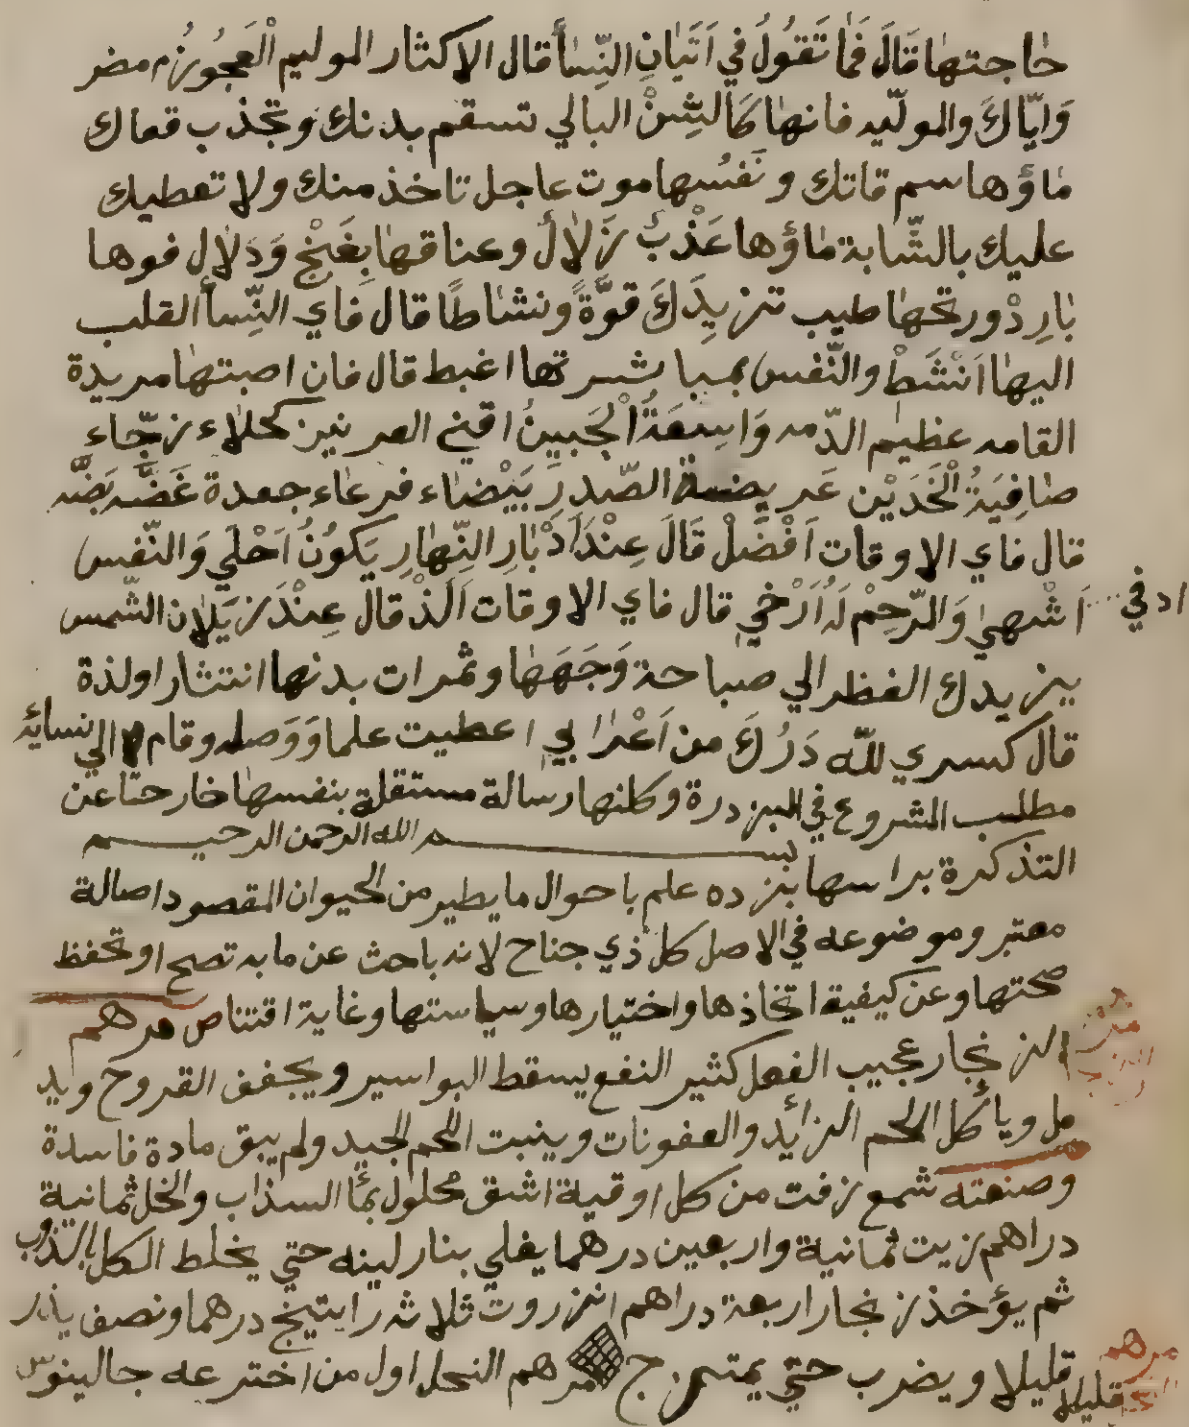 حاجتها قَالَ فَمَا تَقُولُ في اَتَيَانِ النِّسَأ قال الاكثار الموليم الْعَجُوزُ مضر
وَايَّاكَ والمولّيه فانها كَالشِنْ البالي تسقم بدنك وتجذب قعاك
ماؤها سم قاتك ونَفسُها موت عاجل تاخذ منك ولا تعطيك
عليك بالشّابة ماؤها عَذْبٌ زَلاَلٌ وعناقها بِغَنْجٍ وَدَلاَلٍ فوها
بَارِدْ وريحها طيب تزيِدَكَ قوَّةً ونشاطًا قال فاي النِّسأ القلب
اليها اَنْشَطْ والنَّفس بمباشرتها اغبط قال فان اصبتها مريدة
القامه عظيم الدّمه وَاسِعَةُ اْلجَبيِنُ اقني العرنين كحلاء زجّاء
صَافِيَةُ اْلخَدَيْن عَريضة الصّدرِ بَيْضاء فرعاء جعدة غَضَّه بَضَّه
قال فاي الاوقات اَفْضَلْ قَالَ عِنْدَ اَدْبَارِ النِّهَارِ يَكوُنُ اَحْلَي وَالنّفس
اَشْهيَ وَالرّحِمْ لَهُ اَرْخيِ قال فاي الاوقات اَلَذْ قال عِنْدَ زيَلاِن الشّمس
ادفي
يزيدك الفظر الي صباحة وَجَهَهَا وثمرات بدنها انتثارا ولذة
قال كسري للّه دَرُكَ من اَعْرَابيِ اعطيت علما وَوَصله وقام الي نسائه
مطلب الشروع في البزدرة وكلنها رسالة مستقلة بنفسها خارحتا عن
بسم الله الرحمن الرحيم
التذكرة براسها بنزده علم باحوال ما يطير من الحيوان المقصود اصالة
معتبر وموضوعه في الاصل كل ذي جناح لانه باحث عن ما به تصح او تحفظ
صحتها وعن كيفية اتخاذها واختيارها وسياستها وغاية اقتناص مرهم
الزنجار عجيب الفعل كثير النفع يسقط البواسير ويجفف القروح ويد
مل وياكل اللحم الزائد والعفونات وينبت اللحم الجيد ولم يبق مادة فاسدة
وصنعته شمع زفت من كل اوقية اشق محلول بمأ السذاب والخل ثمانية
دراهم زيت ثمانية واربعين درهما يغلي بنار لينه حتي يخلط الكل بالذوب
ثم يؤخذ زنجار اربعة دراهم انزروت ثلاثه راتينج درهما ونصف يذر
قليلا ويضرب حتي يمتزج مرهم النحل اول من اخترعه جالينوس
قليلا
مرهم